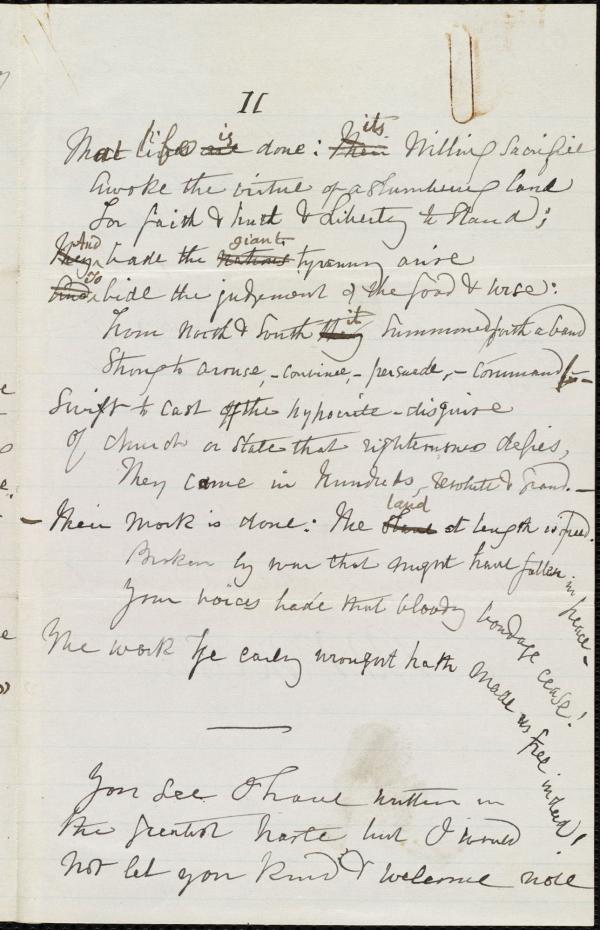 II
That life is done: its Willing Sacrifice
Awoke the virtue of a slumbering land
For faith & truth & Liberty to stand;
And bade the giant tyranny arise
To bide the judgement of the Good & wise:
From North & South it Summoned forth a band
Strong to arouse, - convince, - persuade, - command, -
Swift to cast off the hypocrite-disguise
Of Church or State that righteousness defies,
They came in hundreds, resolute & grand. -
- Their work is done: The land at length is freed.
Broken by war that might have fallen in peace -
Your voices bade that bloody bondage cease!
The work Ye early wrought hath made us free indeed!
You see I have written in
the greatest haste but I would
not let your kind & welcome note